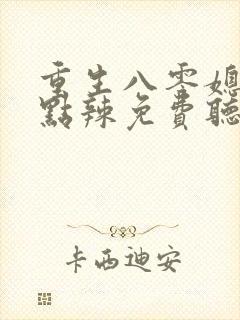 重生八零媳
點辣免費聽
卡西迪安